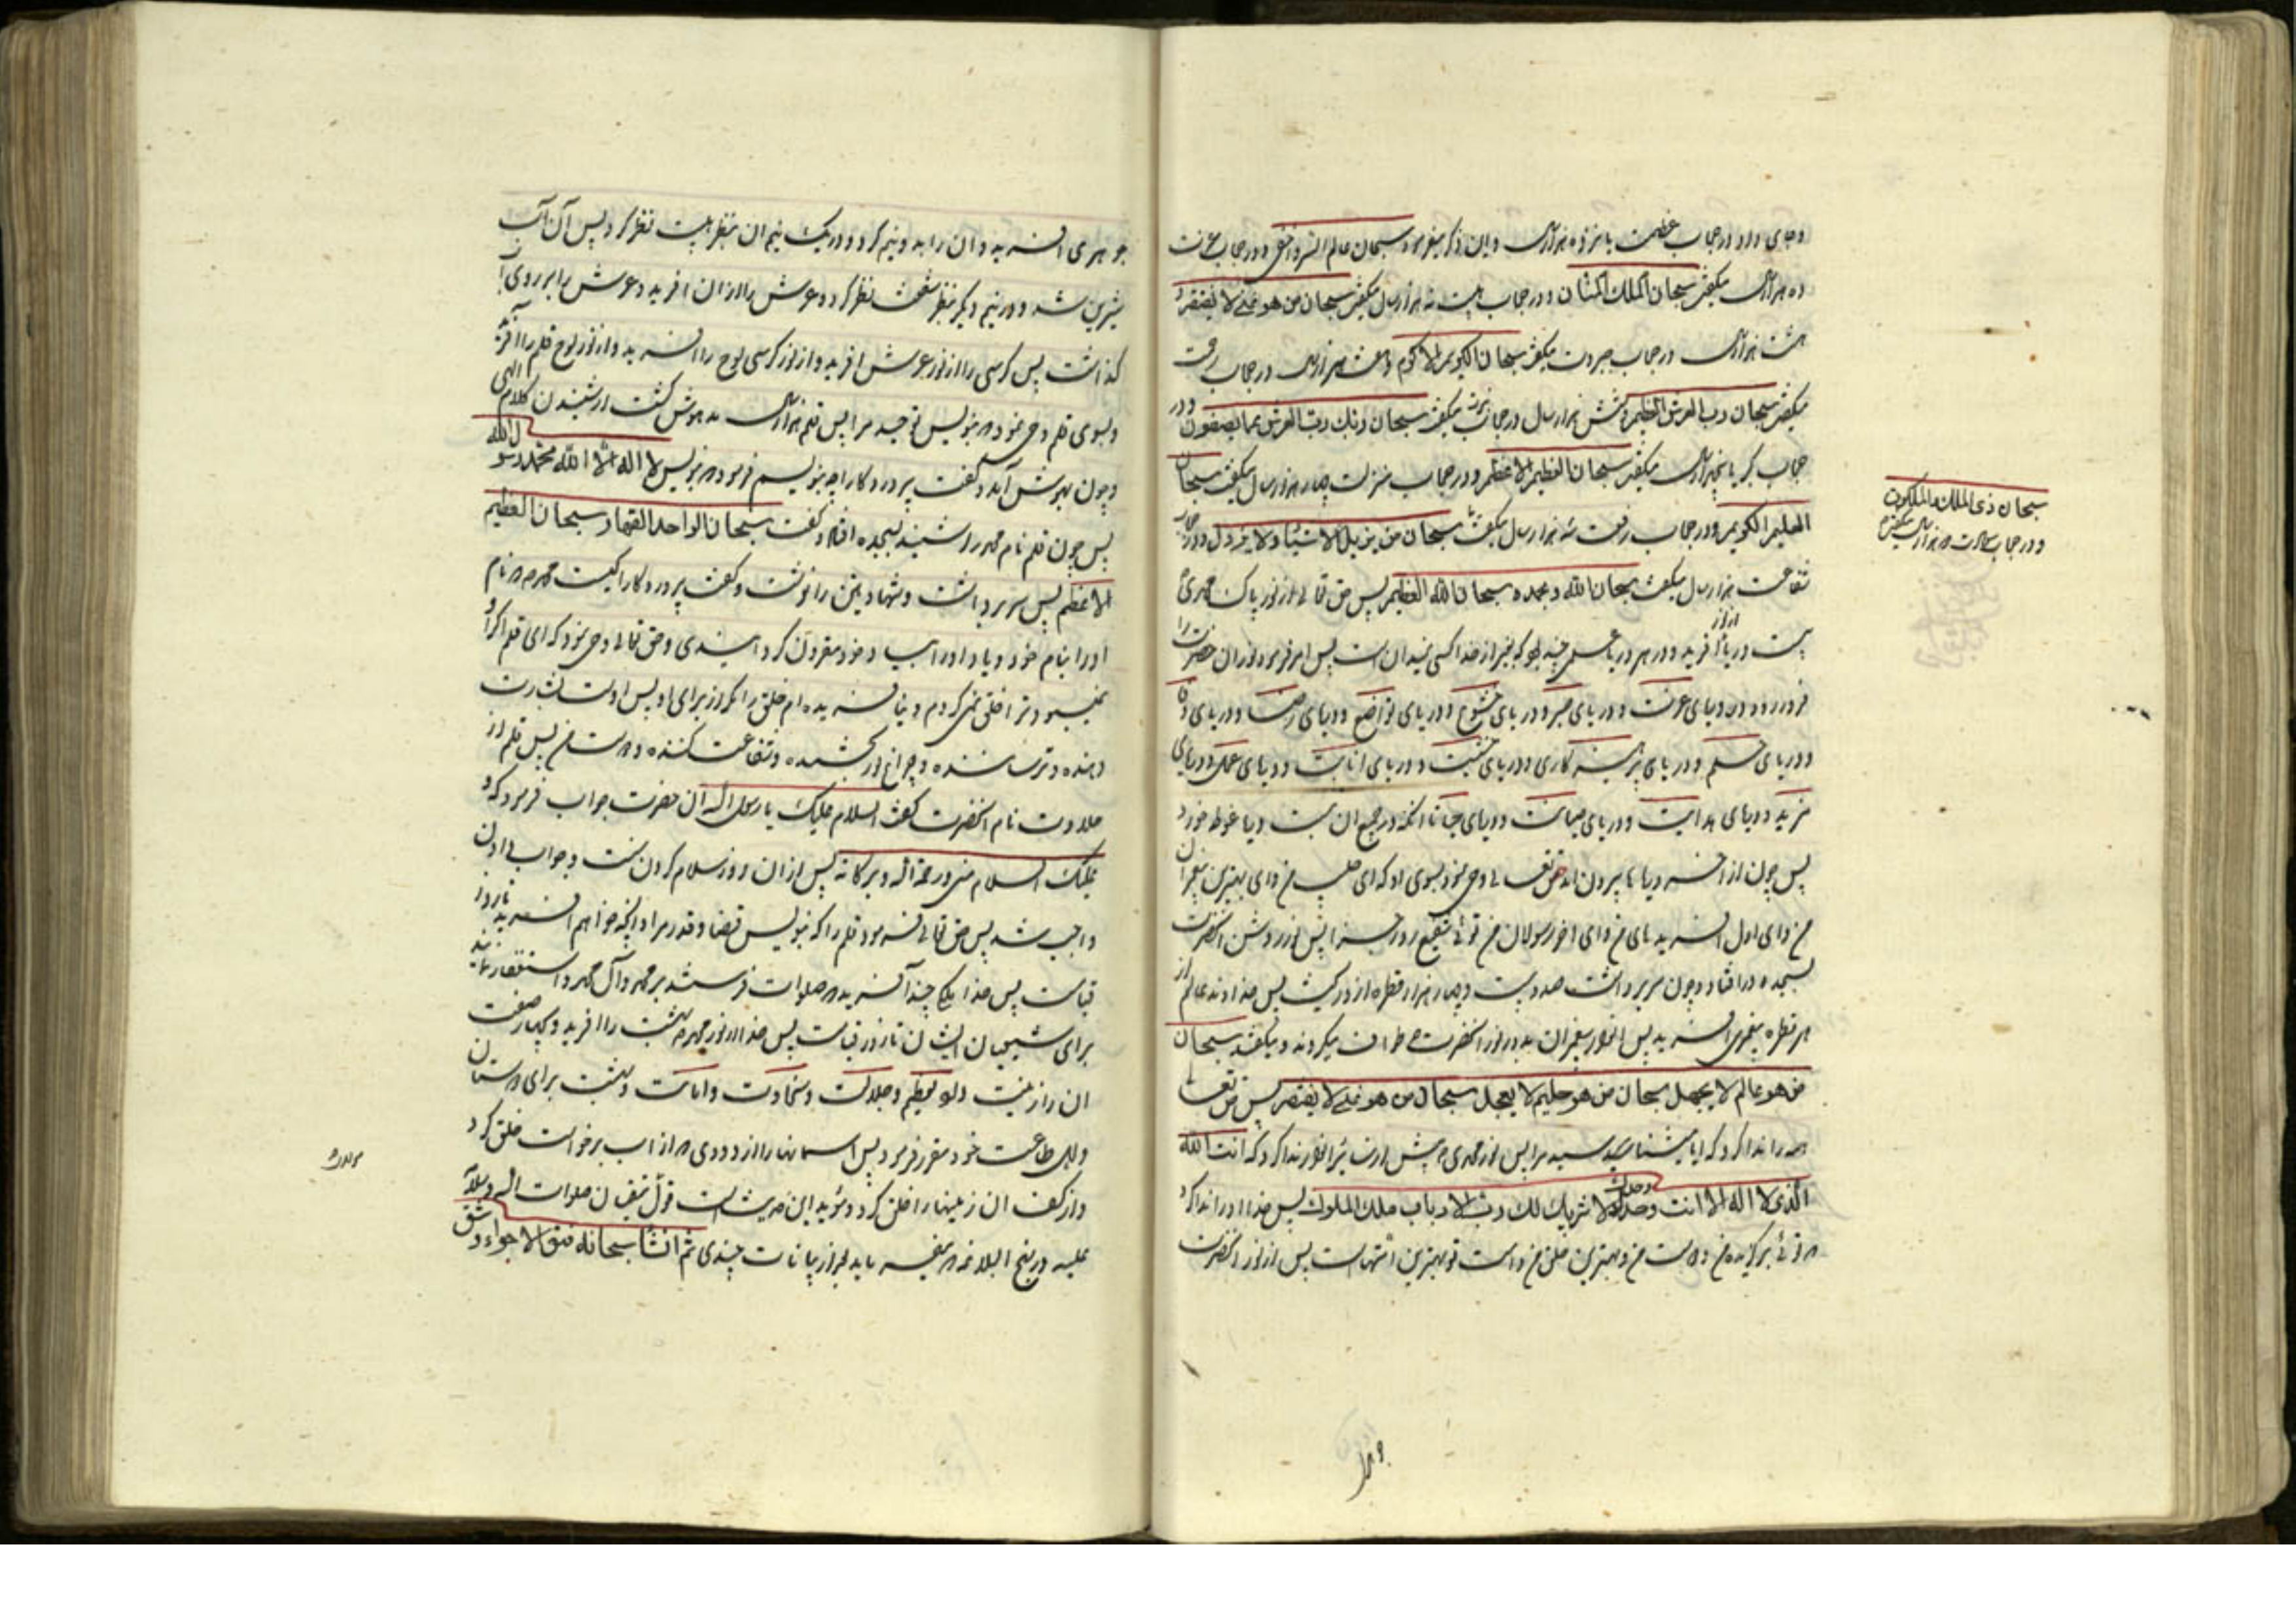 و جای داد و در حجاب عظمت یازده هزار سال و این ذکر میفرمود سبحان عالم السر و اخفی و در حجاب عزت
ده هزار سال میگفت سبحان الملک المنان و در حجاب هیبت نه هزار سال میگفت سبحان من هو غنی لا یفتقر و
هشت هزار سال در حجاب جبروت میگفت سبحان الکریم الاکرم و هفت هزار سال در حجاب رحمت
میگفت سبحان رب العرش العظیم و شش هزار سال در حجاب نبوت میگفت سبحان ربک رب العزة عما یصفون و در
حجاب کبریا پنج هزار سال میگفت سبحان العظیم الاعظم و در حجاب منزلت چهار هزار سال میگفت سبحان
العلیم الکریم و در حجاب رفعت سه هزار سال میگفت سبحان من یزیل الاشیاء و لا یزول و در حجاب
شفاعت هزار سال میگفت سبحان الله و بحمده سبحان الله العظیم پس حق تعالی از نور پاک محمدی
بیست دریا از نور آفرید و در هر دریا علمی چند بود که بغیر از خدا کسی نمیدانست پس امر فرمود نور آن حضرت را
فرو رود در دریای عزت و دریای صبر و دریای خشوع و دریای تواضع و دریای رضا و دریای وفا
و دریای حلم و دریای پرهیزکاری و دریای خشیت و دریای انابت و دریای عمل و دریای
مزید و دریای هدایت و دریای صیانت و دریای حیا تا آنکه در جمیع آن بیست دریا غوطه خورد
پس چون از آخر دریاها بیرون آمد حق تعالی وحی نمود بسوی او که ای حبیب من و ای بهترین پیغمبران
من و ای اول آفریده‌های من و ای آخر رسولان من توئی شفیع روز جزا پس نور روشن آنحضرت
بسجده در افتاد و چون سر برداشت صد و بیست و چهار هزار قطره از او ریخت پس خداوند عالم از
هر قطره پیغمبری آفرید پس انوار پیغمبران بدور نور آنحضرت طواف میکردند و میگفتند سبحان
من هو عالم لا یجهل سبحان من هو حلیم لا یعجل سبحان من هو غنی لا یفتقر پس حق تعالی
همه را ندا کرد که آیا میشناسید مرا پس نور محمدی پیش از سایر انوار ندا کرد که انت الله
الذی لا اله الا انت وحدک لا شریک لک رب الارباب ملک الملوک پس خدا او را ندا کرد
که توئی برگزیده من و دوست من و بهترین خلق من و امت تو بهترین امتهاست پس از نور آنحضرت
سبحان ذی الملک و الملکوت
و در حجاب سعادت دو هزار سال میگفت
جوهری آفرید و آن را بدو نیم کرد و در یک نیم آن بنظر هیبت نظر کرد پس آن آب
شیرین شد و در نیم دیگر بنظر شفقت نظر کرد و عرش را از آن آفرید و عرش را بر روی آب
گذاشت پس کرسی را از نور عرش آفرید و از نور کرسی لوح را آفرید و از نور لوح قلم را آفرید
و بسوی قلم وحی نمود که بنویس توحید مرا پس قلم هزار سال مدهوش گشت از شنیدن کلام الهی
و چون بهوش آمد گفت پروردگارا چه بنویسم فرمود که بنویس لا اله الا الله محمد رسول الله
پس چون قلم نام محمد را شنید بسجده افتاد و گفت سبحان الواحد القهار سبحان العظیم
الاعظم پس سر برداشت و شهادتین را نوشت و گفت پروردگارا کیست محمد که نام
او را بنام خود و یاد او را بیاد خود مقرون گردانیدی و حق تعالی وحی نمود که ای قلم اگر او
نمیبود ترا خلق نمی‌کردم و نیافریده‌ام خلق را مگر از برای او پس اوست بشارت
دهنده و ترساننده و چراغ نوربخشنده و شفاعت کننده و دوست من پس قلم از
حلاوت نام آنحضرت گفت السلام علیک یا رسول الله آن حضرت جواب فرمود که و
علیک السلام منی و رحمة الله و برکاته پس از آن روز سلام کردن سنت و جواب دادن
واجب شد پس حق تعالی فرمود قلم را که بنویس قضا و قدر مرا و آنچه خواهم آفرید تا روز
قیامت پس خدا ملکی چند آفرید که صلوات فرستند بر محمد و آل محمد و استغفار نمایند
برای شیعیان ایشان تا روز قیامت پس خدا از نور محمد بهشت را آفرید و بچهار صفت
آن را زینت داد تعظیم و جلالت و سخاوت و امانت و بهشت برای دوستان
و اهل طاعت خود مقرر فرمود پس آسمانها را از دودی که از آب برخواست خلق کرد
و از کف آن زمینها را خلق کرد و مؤید این حدیث است قول صلوات الله و سلامه
علیه در نهج البلاغه که میفرماید بعد از بیانات چندی ثم انشأ سبحانه فتق الاجواء و شق